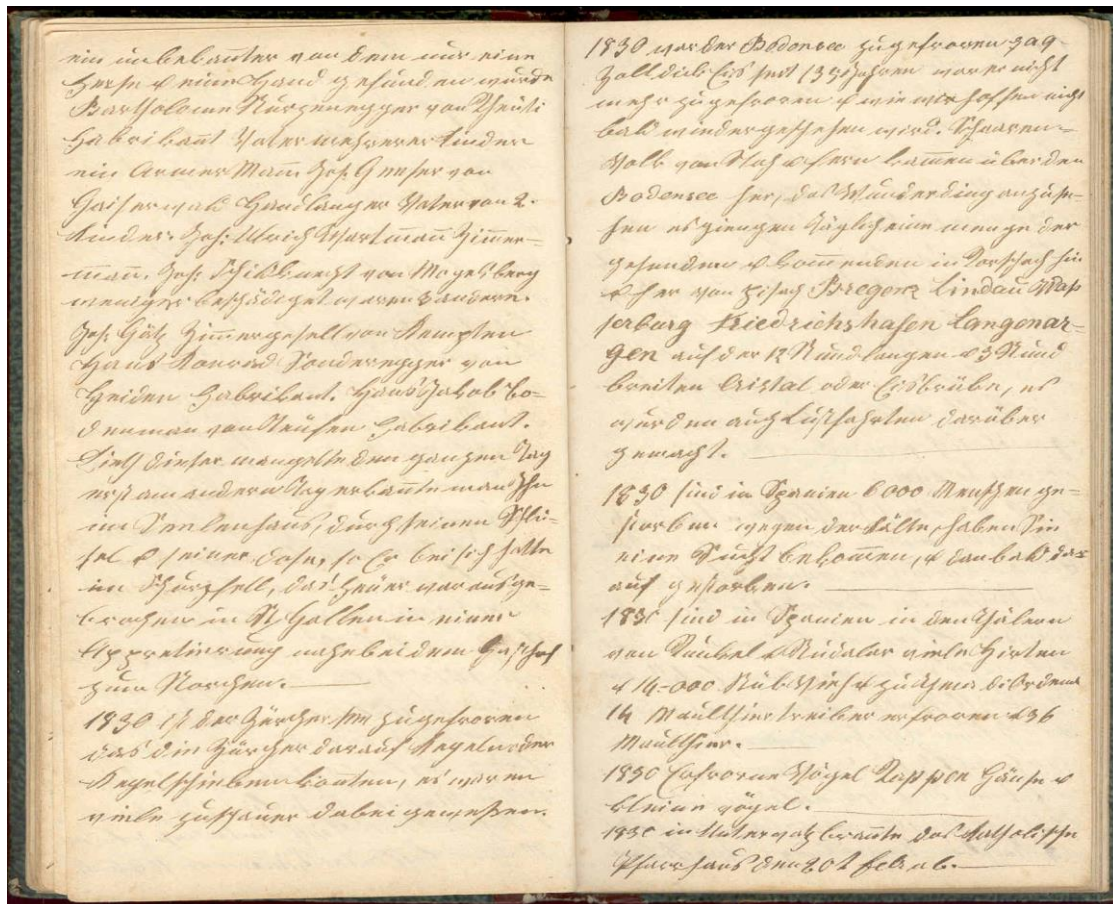 ein unbekanter von dem nur eine
Ferse & eine Hand gefunden wurde
Bartholome Nürzenegger von Theüti
Fabrikant Vater mehrerer Kinder
ein Armer Mann Joh: Gmeser von
Gaiserwald Handlanger Vater von 2.
Kinder. Joh: Ulrich Hartmañ Zimer=
mañ. Joh: Schiktnecht von Mogelsberg
weniger beschädiget waren 3 andere.
Joh: Götz Zimergesell von Kempten
Hans Konrad Sonderegger von
Heiden Fabrikant. Hans Jakob Bo=
denman von Teüfen Fabrikant.
dieser mangelte den ganzen Tag
erst am andern Tag erkañte man Ihn
im Seelenhaus, durch seinen Schlü=
sel & seiner Dose, so Er bei sich hatte
im Schurzfell, das Feüer war ausge=
brochen in St Gallen in einer
Appretierung nahe bei dem Gasthof
zum Storchen.
1830 ist der Zürcher See zugefroren
das die Zürcher darauf Kegeln oder
Kegelschieben konten, es waren
viele zuschauer dabei gewessen.
1830 war der Bodensee zugefroren 3 a 9
Zoll dick Eis seit 135 Jahren war er nicht
mehr zugefroren & wie wir hoffen nicht
bald wieder geschehen wird. Schaaren=
Volk von Nah & fern kamen über den
Bodensee her, das Wunderding anzuse=
hen es giengen täglich eine menge der
gehenden & kommenden in Rorschach hin
& her von Bregenz Lindau Was
serburg Friedrichshafen Langenar=
gen auf der 12 Stund langen & 3 Stund
breiten Cristal oder Eisbrüke, es
wurden auch Lustfahrten darüber
gemacht.
1830 sind in Spanien 6000 Menschen ge=
storben wegen der Kälte, haben Sie
eine Sucht bekommen, & dan bald dar
auf gestorben.
1830 sind in Spanien in den Thälern
von viele Hirten
& 14-000 Stük Vieh &
14 Maulthiertreiber erfroren & 36
Maulthier.
1830 Erfrorne Vögel Rappen Gänse &
kleine vögel.
1830 in Untervatz brañte das Katholische
Pfarrhaus den 20t Feb. ab.